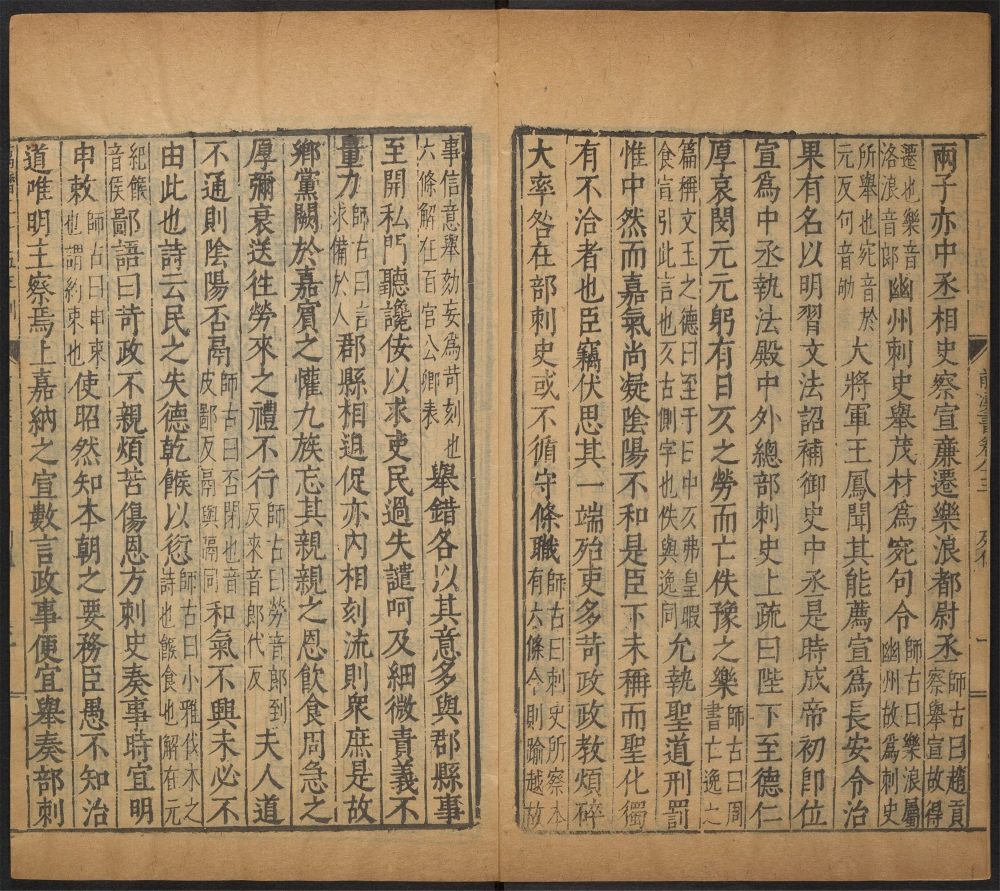 兩子亦中丞相史察宣廉遷樂浪都尉丞師古曰趙貢察舉宣故得
遷也樂音洛浪音郎幽州刺史舉茂材爲宛句令師古曰樂浪屬幽州故爲刺史
所舉也宛音於元反句音劬大將軍王鳳聞其能薦宣爲長安令治
果有名以明習文法詔補御史中丞是時成帝初卽位
宣爲中丞執法殿中外總部刺史上疏曰陛下至德仁
厚哀閔元元躬有日仄之勞而亡佚豫之樂師古曰周書亡逸之
篇稱文王之德曰至于日中仄弗皇暇食宣引此言也仄古側字也佚與逸同允執聖道刑罰
惟中然而嘉氣尚凝陰陽不和是臣下未稱而聖化獨
有不洽者也臣竊伏思其一端殆吏多苛政政教煩碎
大率咎在部刺史或不循守條職師古曰刺史所察本有六條今則踰越故
事信意舉劾妄爲苛刻也六條解在百官公卿表舉錯各以其意多與郡縣事
至開私門聽讒佞以求吏民過失譴呵及細微責義不
量力師古曰言求備於人郡縣相迫促亦內相刻流則衆庶是故
鄉黨闕於嘉賓之懽九族忘其親親之恩飲食周急之
厚彌衰送往勞來之禮不行師古曰勞音郎到反來音郎代反夫人道
不通則陰陽否鬲師古曰否閉也音皮鄙反鬲與隔同和氣不興未必不
由此也詩云民之失德乾餱以愆師古曰小雅伐木之詩也餱食也解在元
紀餱音侯鄙語曰苛政不親煩苦傷恩方刺史奏事時宜明
申敕師古曰申束也謂約束也使昭然知本朝之要務臣愚不知治
道唯明主察焉上嘉納之宣數言政事便宜舉奏部刺
前漢書卷八三
列傳